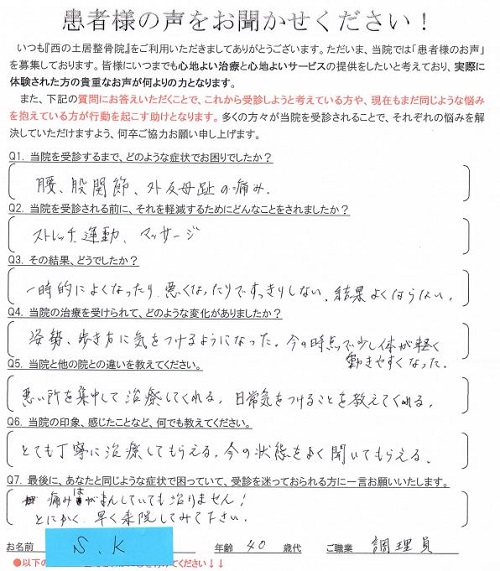 患者様の声をお聞かせください！
いつも『西の土居整骨院』をご利用いただきましてありがとうございます。ただいま、当院では「患者様のお声」
を募集しております。皆様にいつまでも心地よい治療と心地よいサービスの提供をしたいと考えており、実際に
体験された方の貴重なお声が何よりの力となります。
また、下記の質問にお答えいただくことで、これから受診しようと考えている方や、現在もまだ同じような悩み
を抱えている方が行動を起こす助けとなります。多くの方々が当院を受診されることで、それぞれの悩みを解
決していただけますよう、何卒ご協力お願い申し上げます。
Q1. 当院を受診するまで、どのような症状でお困りでしたか？
腰、股関節、外反母趾の痛み.
Q2. 当院を受診される前に、それを軽減するためにどんなことをされましたか？
ストレッチ運動、マッサージ
Q3. その結果、どうでしたか？
一時的によくなったり、悪くなったりですっきりしない、結果よくはらない。
Q4. 当院の治療を受けられて、どのような変化がありましたか？
姿勢、歩き方に気をつけるようになった。今の時点で少し体が軽く
動きやすくなった。
Q5. 当院と他の院との違いを教えてください。
悪い所を集中して治療してくれる。日常気をつけることを教えてくれる。
Q6. 当院の印象、感じたことなど、何でも教えてください。
とても丁寧に治療してもらえる。今の状態をよく聞いてもらえる、
Q7. 最後に、あなたと同じような症状で困っていて、受診を迷っておられる方に一言お願いいたします。
痛みはがまんしていても治りません！
とにかく、早く来院してみて下さい。
お名前 S.K 年齢 40 歳代 ご職業 調理員
●以下の てください！↓↓